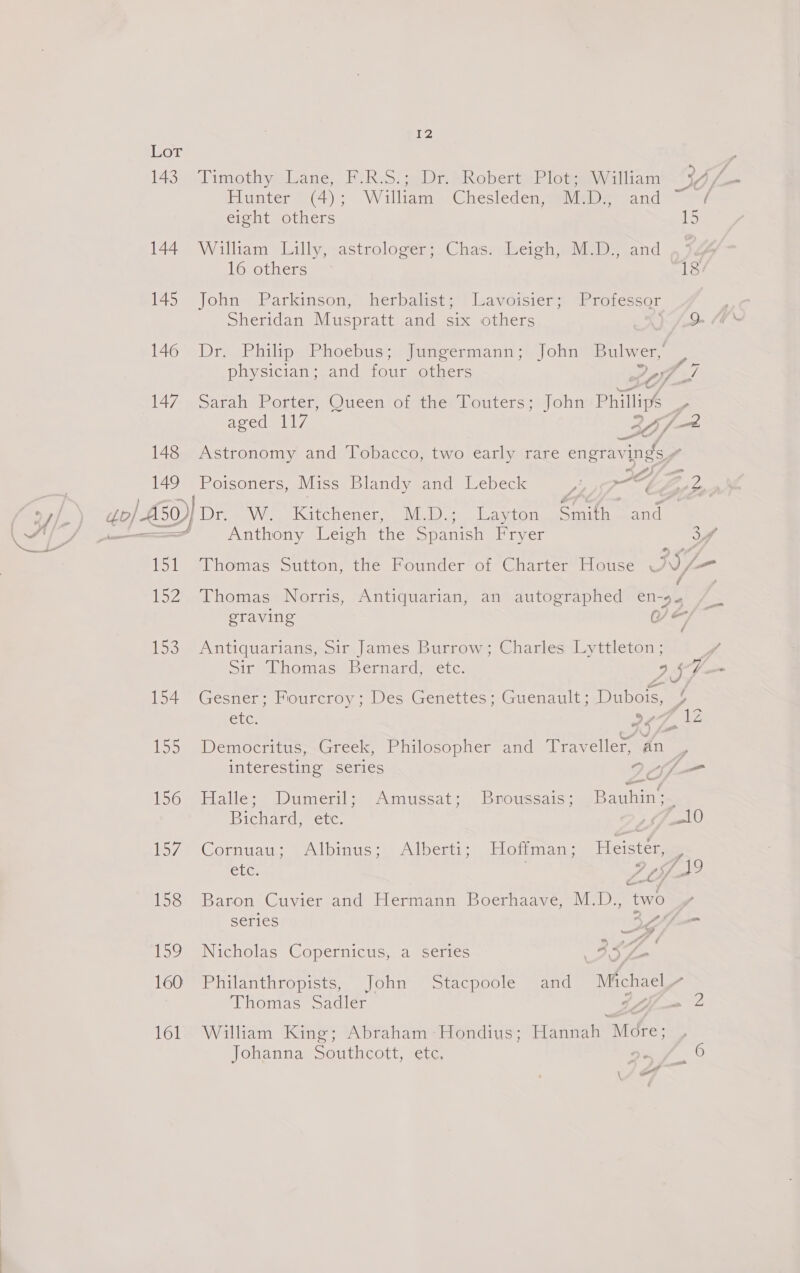 12
LOT
143 Timothy Lane, F.R.S.; Dr. Robert Plot; William
Hunter (4); William Chesleden, M.D., and
eight others 15
144 William Lilly, astrologer; Chas. Leigh, M.D., and
16 others 18
145 John Parkinson, herbalist; Lavoisier; Professor
Sheridan Muspratt and six others 9
146 Dr. Philip Phoebus; Jungermann; John Bulwer,
physician; and four others 7
147 Sarah Porter, Queen of the Touters; John Phillips
aged 117 2
148 Astronomy and Tobacco, two early rare engravings
149 Poisoners, Miss Blandy and Lebeck 2
150 Dr. W. Kitchener, M.D.; Layton Smith and
Anthony Leigh the Spanish Fryer 3
151 Thomas Sutton, the Founder of Charter House
152 Thomas Norris, Antiquarian, an autographed en-
graving
153 Antiquarians, Sir James Burrow; Charles Lyttleton;
Sir Thomas Bernard, etc.
154 Gesner; Fourcroy; Des Genettes; Guenault; Dubois,
etc. 12
155 Democritus, Greek, Philosopher and Traveller, an
interesting series
156 Halle; Dumeril; Amussat; Broussais; Bauhin;
Bichard, etc. 10
157 Cornuau; Albinus; Alberti; Hoffman; Heister,
etc. 19
158 Baron Cuvier and Hermann Boerhaave, M.D., two
series
159 Nicholas Copernicus, a series
160 Philanthropists, John Stacpoole and Michael
Thomas Sadler 2
161 William King; Abraham Hondius; Hannah More;
Johanna Southcott, etc, 6